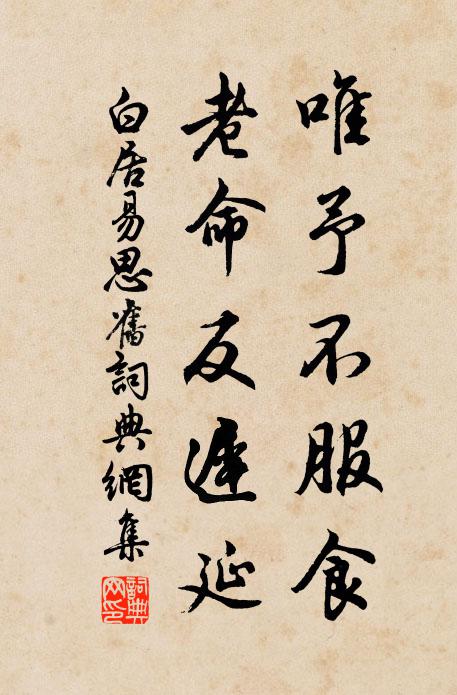 唯予不服食
老命反遲延
白居易思舊詞典網集
詞典網印